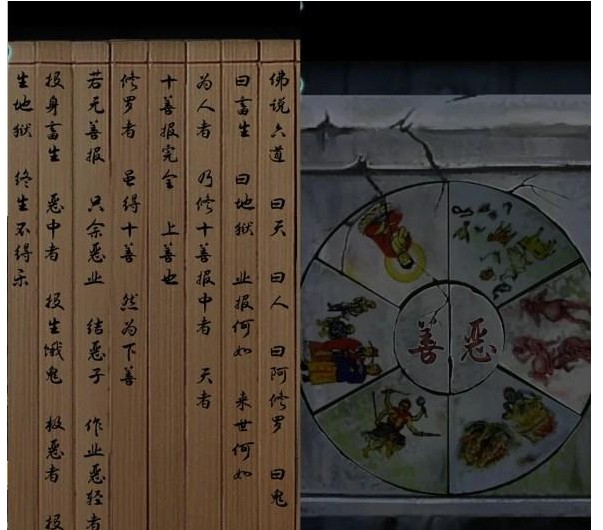 佛说六道 曰天 曰人 曰阿修罗 曰鬼
曰畜生 曰地狱 业报何如 来世何如
为人者 乃修十善报中者 天者
十善报完全 上善也
修罗者 虽得十善 然为下善
若无善报 只余恶业 结恶子 作业恶轻者
投身畜生 恶中者 投生饿鬼 极恶者 投
生地狱 终生不得乐
善 恶